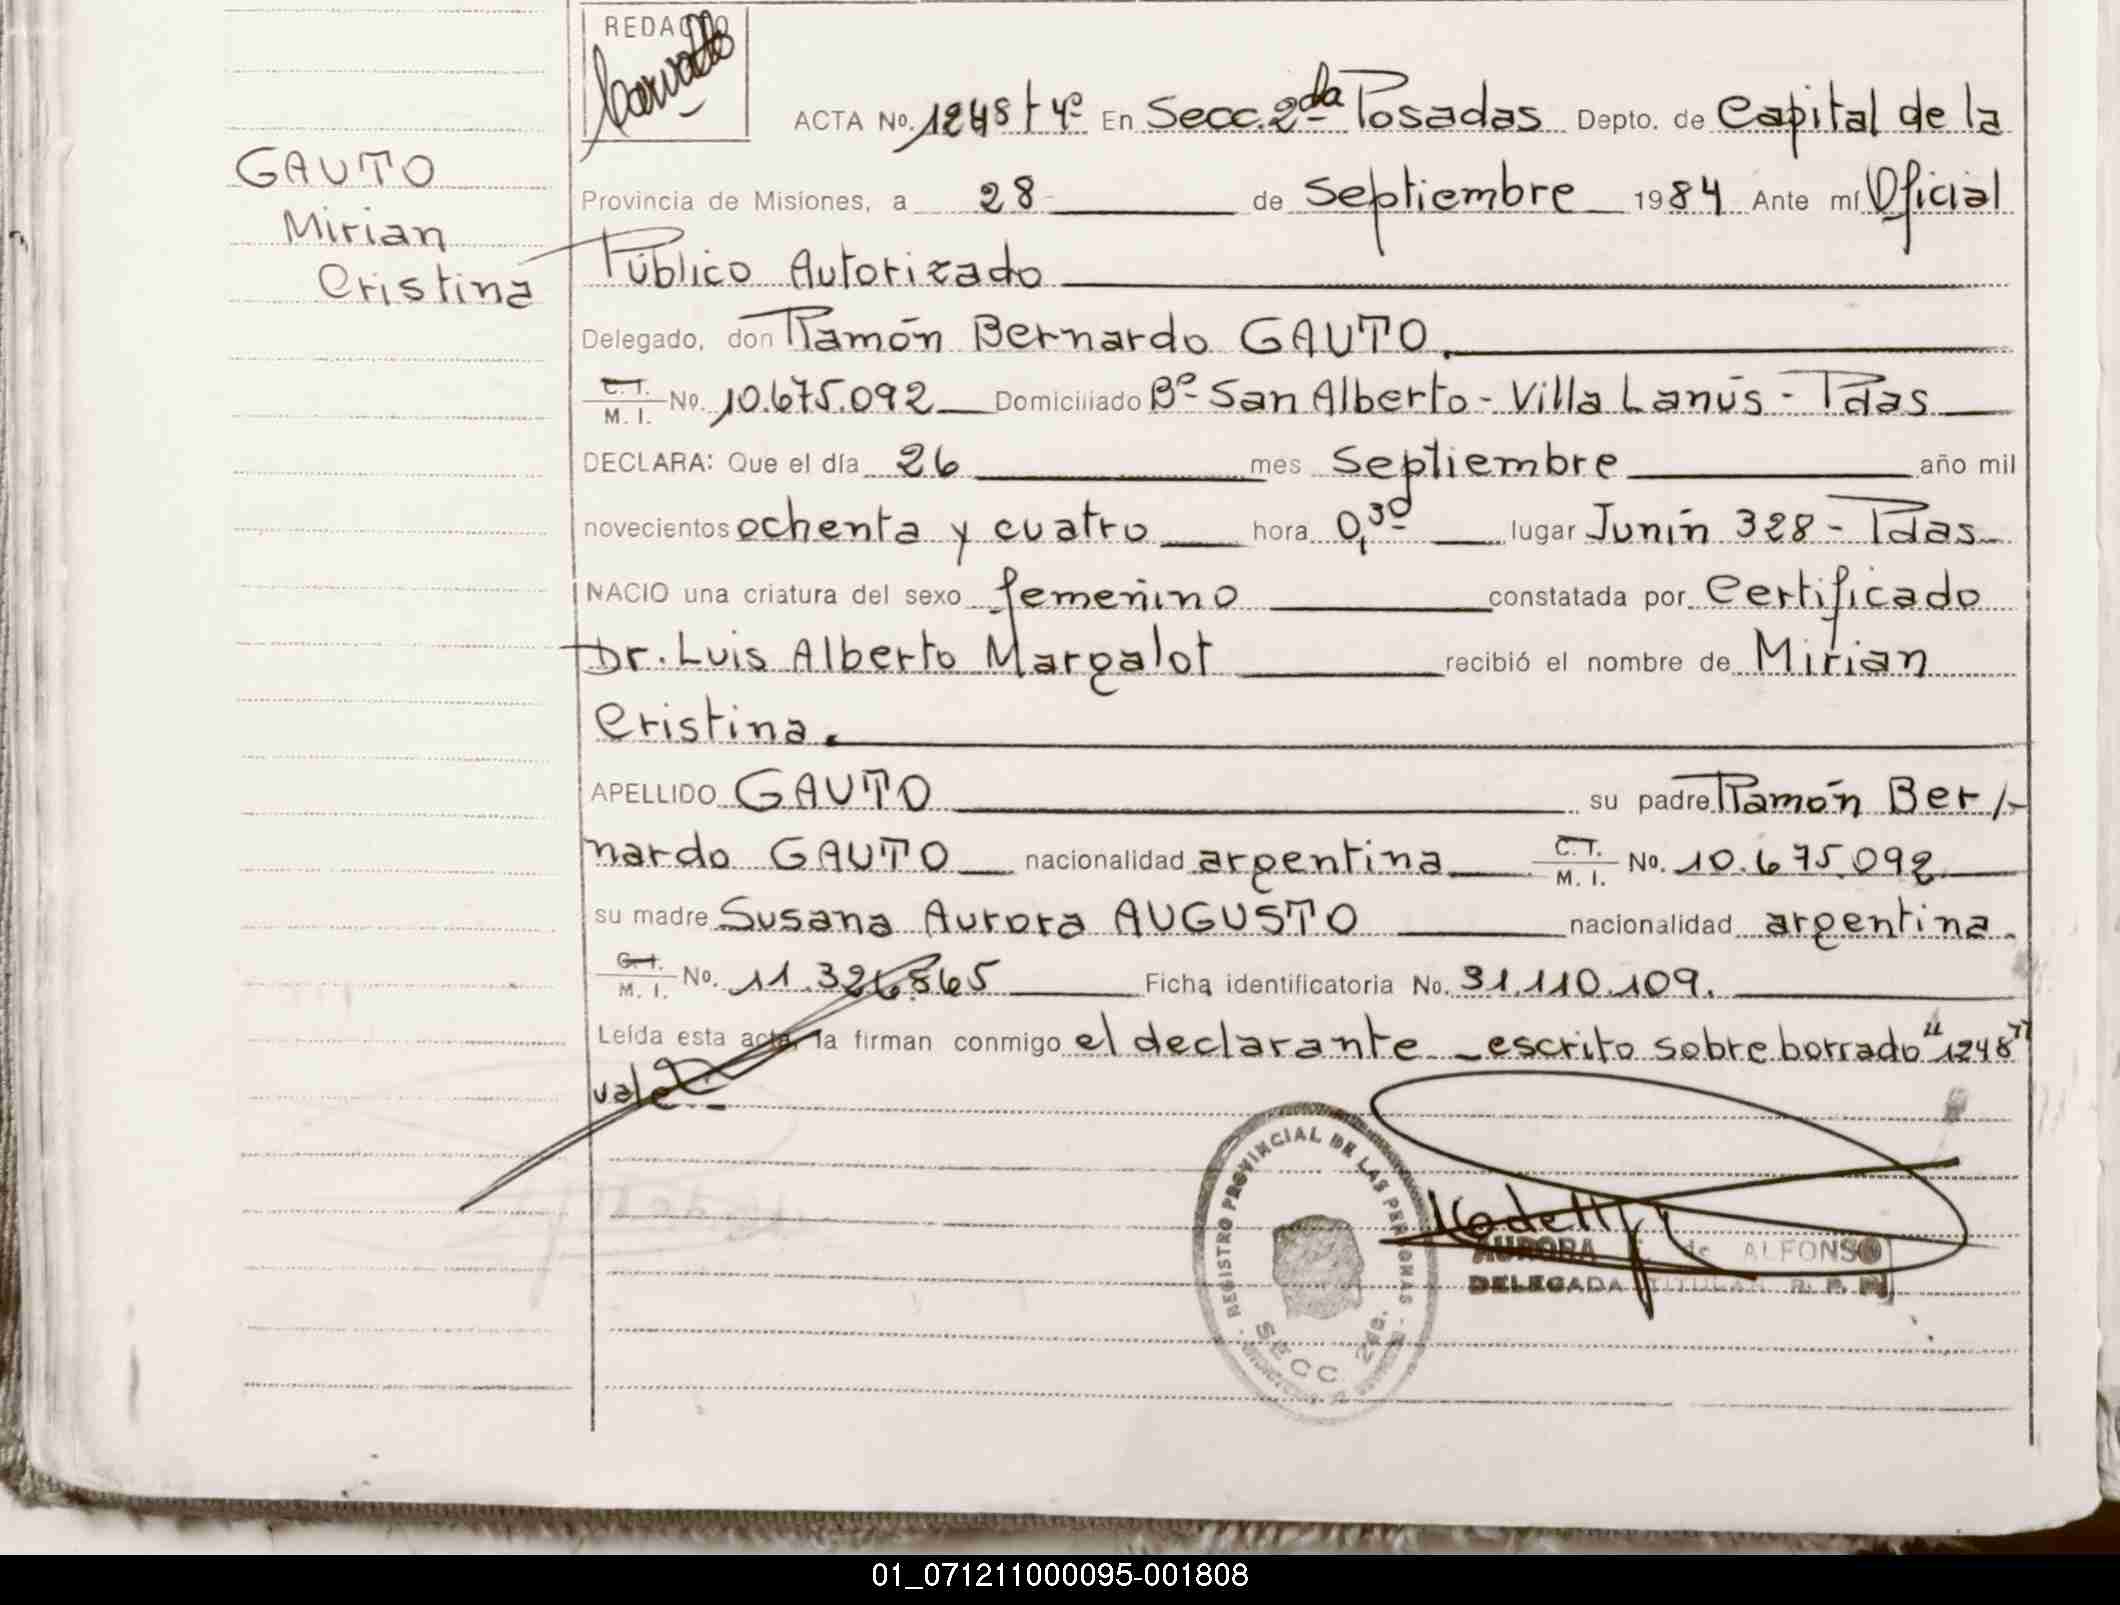 REDACTO
ACTA No. 1248 T 4º En Secc. 2da Posadas Depto. de Capital de la
GAUTO
Mirian
Cristina
Provincia de Misiones, a 28 de Septiembre 1984 Ante mí Oficial
Público Autorizado
Delegado, don Ramón Bernardo GAUTO.
C.I. M. I. No. 10.675.092 Domiciliado Bº San Alberto - Villa Lanús - Pdas
DECLARA: Que el día 26 mes Septiembre año mil
novecientos ochenta y cuatro hora 0,30 lugar Junín 328 - Pdas
NACIO una criatura del sexo femenino constatada por Certificado
Dr. Luis Alberto Margalot recibió el nombre de Mirian
Cristina.
APELLIDO GAUTO su padre Ramón Ber/-
nardo GAUTO nacionalidad argentina C.I. M. I. No. 10.675.092
su madre Susana Aurora AUGUSTO nacionalidad argentina.
C.I. M. I. No. 11.326.865 Ficha identificatoria No. 31.110.109.
Leída esta acta, la firman conmigo el declarante - escrito sobre borrado "1248"
vale.-
REGISTRO PROVINCIAL DE LAS PERSONAS
SECC. 2da.
AURORA de ALFONSO
DELEGADA TITULAR R. P. P.
01_071211000095-001808